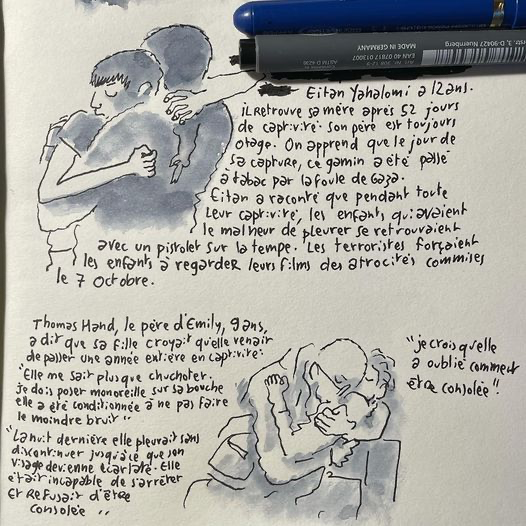 str. 3, D-90427 Nuernberg
MADE IN GERMANY
EAN 40 07817 013007
ASTM D 4236
Eitan Yahalomi a 12 ans.
iL Retrouve sa mère après 52 jours
de captivité. son père est toujours
otage. On apprend que le jour de
sa capture, ce gamin a été passé
à tabac par la foule de Gaza.
Eitan a raconté que pendant toute
leur captivité, les enfants qui avaient
le malheur de pleurer se retrouvaient
avec un pistolet sur la tempe. Les terroristes forçaient
les enfants à regarder leurs films des atrocités commises
le 7 Octobre.
Thomas Hand, le père d'Emily, 9 ans,
a dit que sa fille croyait qu'elle venait
de passer une année entière en captivité.
"Elle ne sait plus que chuchoter.
je dois poser mon oreille sur sa bouche
elle a été conditionnée à ne pas faire
le moindre bruit"
"La nuit dernière elle pleurait sans
discontinuer jusqu'à ce que son
visage devienne écarlate. Elle
était incapable de s'arrêter
et refusait d'être
consolée"
"je crois qu'elle
a oublié comment
être consolée"!